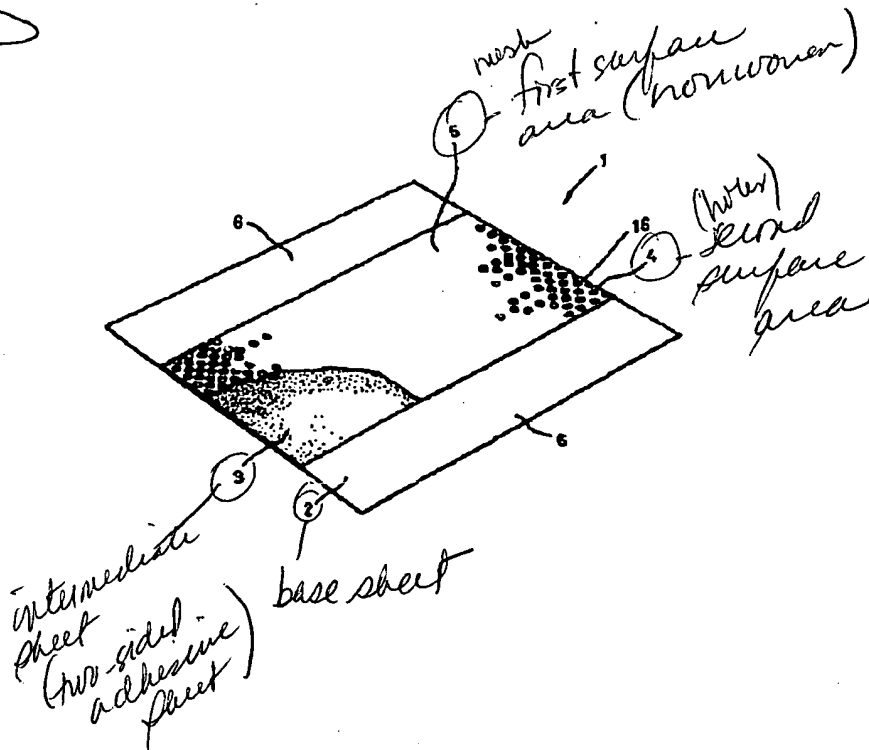 mesh
5 - first surface
area (nonwoven)
1
6
16
(holes)
4 - second
surface
area
6
3
2
intermediate
sheet
(two-sided
adhesive
sheet)
base sheet